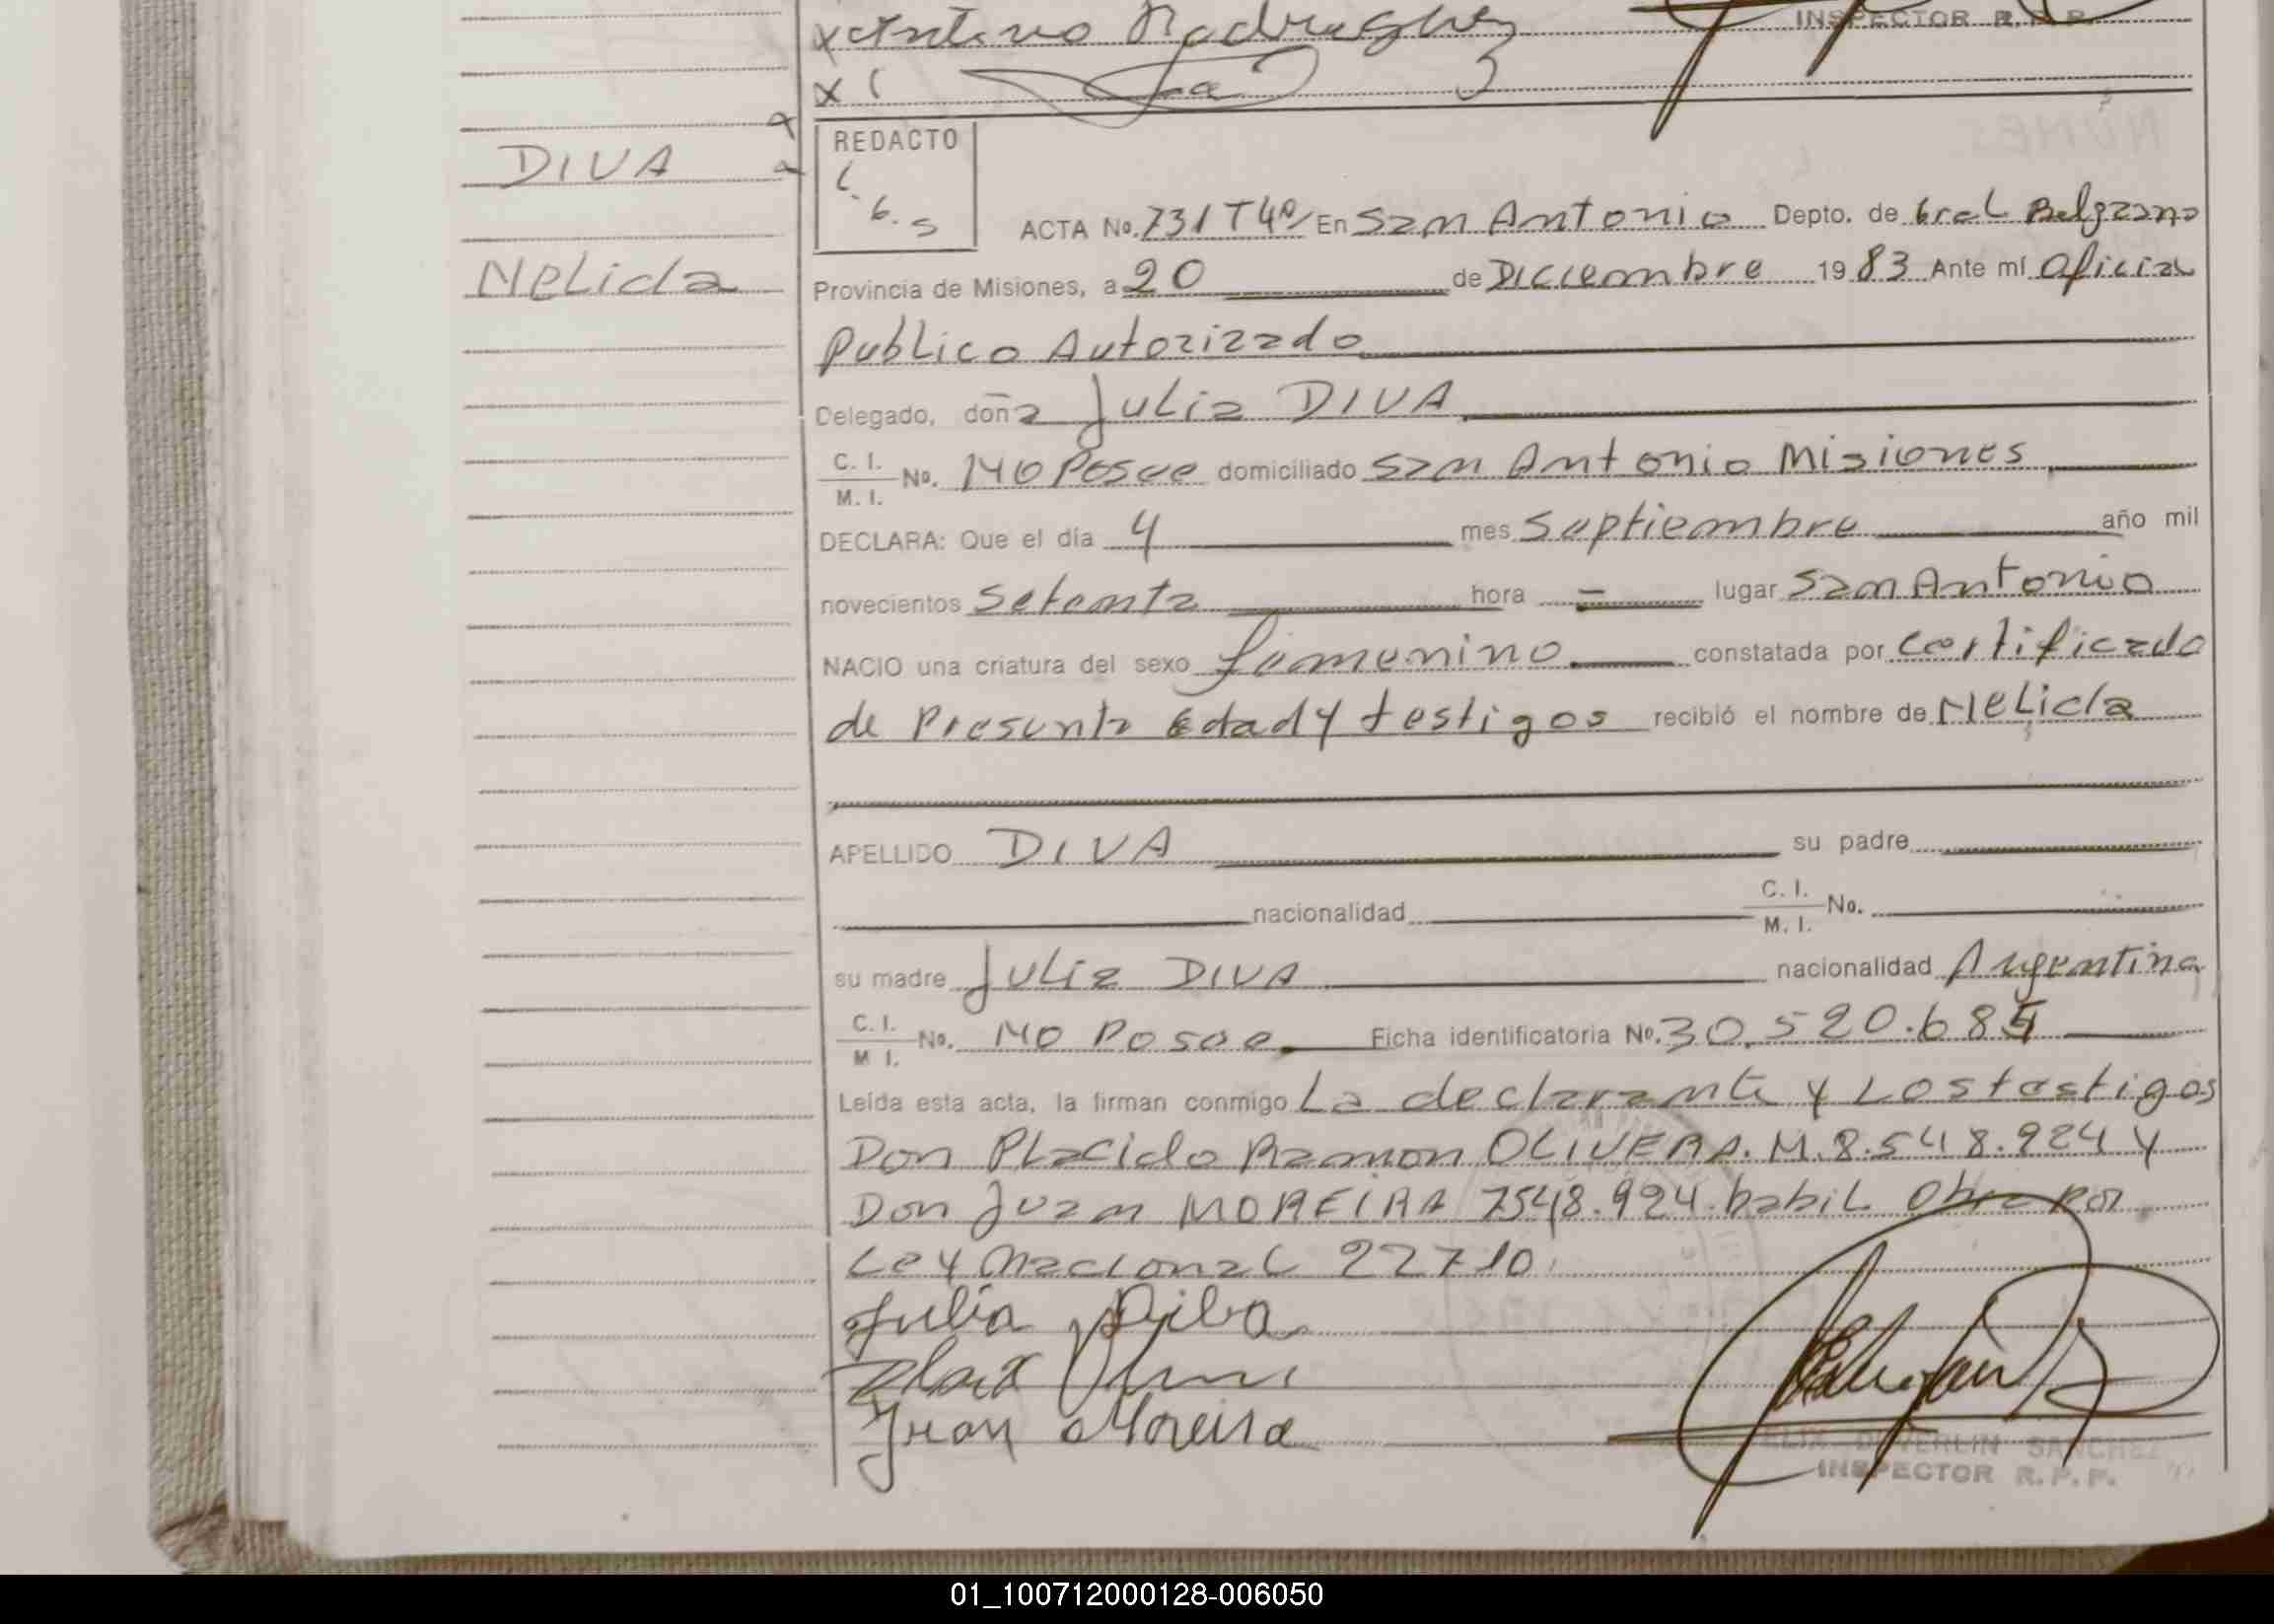 Antonio Rodriguez
INSPECTOR R. P. P.
X
REDACTO
DIVA
ACTA No. 731 Tº 4º En San Antonio Depto. de Gral Belgrano
Nelida
Provincia de Misiones, a 20 de Diciembre 1983 Ante mí Oficial
Publico Autorizado
Delegado, doña Julia DIVA
C. I.
M. I. No. NO Posee domiciliado San Antonio Misiones
DECLARA: Que el día 4 mes Septiembre año mil
novecientos Setenta hora - lugar San Antonio
NACIO una criatura del sexo femenino constatada por Certificado
de Presunta Edad y testigos recibió el nombre de Nelida
APELLIDO DIVA su padre
nacionalidad C. I.
M. I. No.
su madre Julia DIVA nacionalidad Argentina
C. I.
M. I. No. NO Posee Ficha identificatoria No. 30.520.685
Leída esta acta, la firman conmigo La declarante y Los testigos
Don Placido Ramon OLIVERA. M. 8.548.924 y
Don Juan MOREIRA 7548.924 habil Obra Por
Ley Nacional 22710
Julia Diba
Juan Moreira
FELIX DUVERLIN SANCHEZ
INSPECTOR R. P. P.
01_100712000128-006050